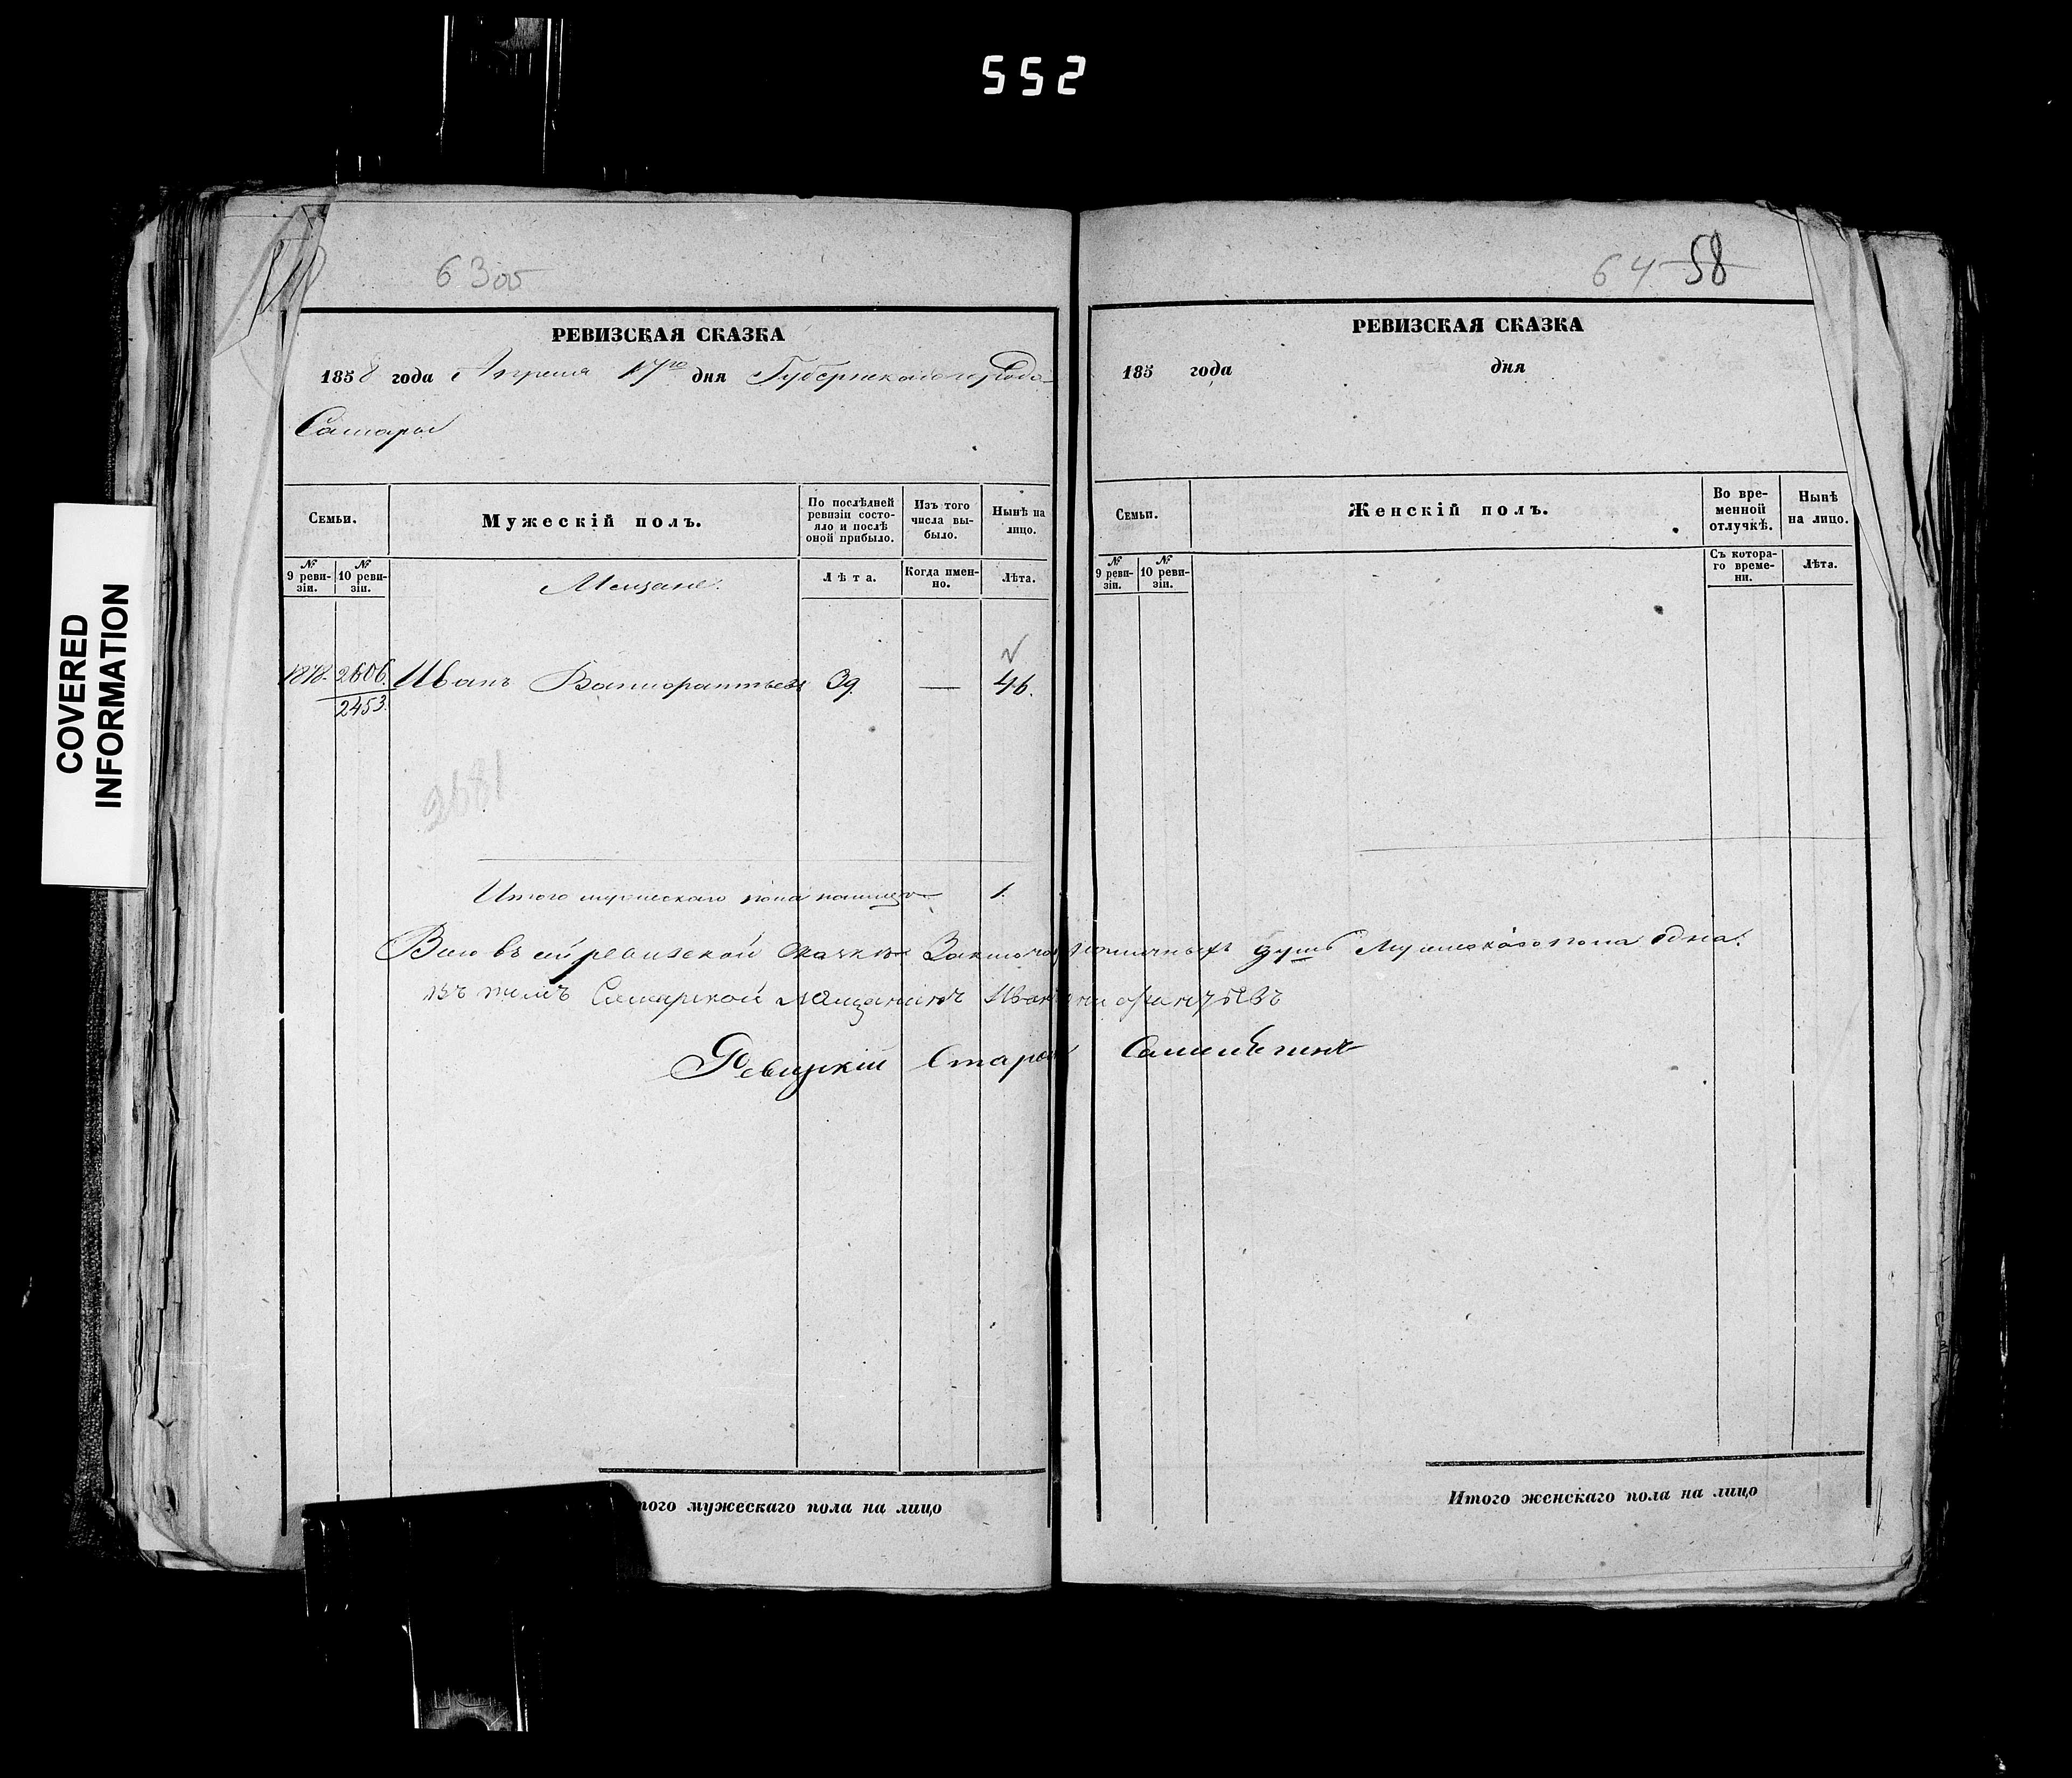 552
COVERED
INFORMATION
63 об
64 58
РЕВИЗСКАЯ СКАЗКА
1858 года Апреля 17го дня Губернскаго города
Самары
Семьи.
Мужескій полъ.
По послѣдней ревизіи состояло и послѣ оной прибыло.
Изъ того числа выбыло.
Нынѣ на лицо.
№ 9 ревизіи.
№ 10 ревизіи.
Мещане.
Лѣта.
Когда именно.
Лѣта.
1878. 2606. Иванъ 39. — 46.
2453.
2681
Итого мужескаго пола налицо 1.
Всего въ сей ревизской сказке наличныхъ душъ Мужескаго пола одна.
въ томъ Самарской мещанинъ
Старой
того мужескаго пола на лицо
РЕВИЗСКАЯ СКАЗКА
185 года дня
Семьи.
Женскій полъ.
Во временной отлучкѣ.
Нынѣ на лицо.
№ 9 ревизіи.
№ 10 ревизіи.
Съ котораго времени.
Лѣта.
Итого женскаго пола на лицо